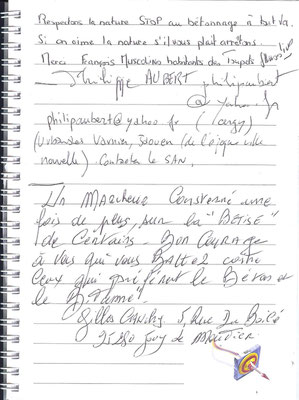 Respectons la nature STOP au bétonnage à tout va.
Si on aime la nature s'il vous plait arrêtons.
Merci François Muscolino habitants des
Philippe AUBERT philipaubert
@ yahoo.fr
philipaubert@yahoo.fr (Cergy)
(Urbaniste Vernier, Issou (de l'époque ville
nouvelle) Contacter le SAN.
Un Marcheur Consterné une
fois de plus, sur la "BETISE"
de Certains - Bon Courage
à vous qui vous Battez contre
Ceux qui préfèrent le Béton et
le Bitume".
Gilles 5, Rue
95280 Jouy le Moutier